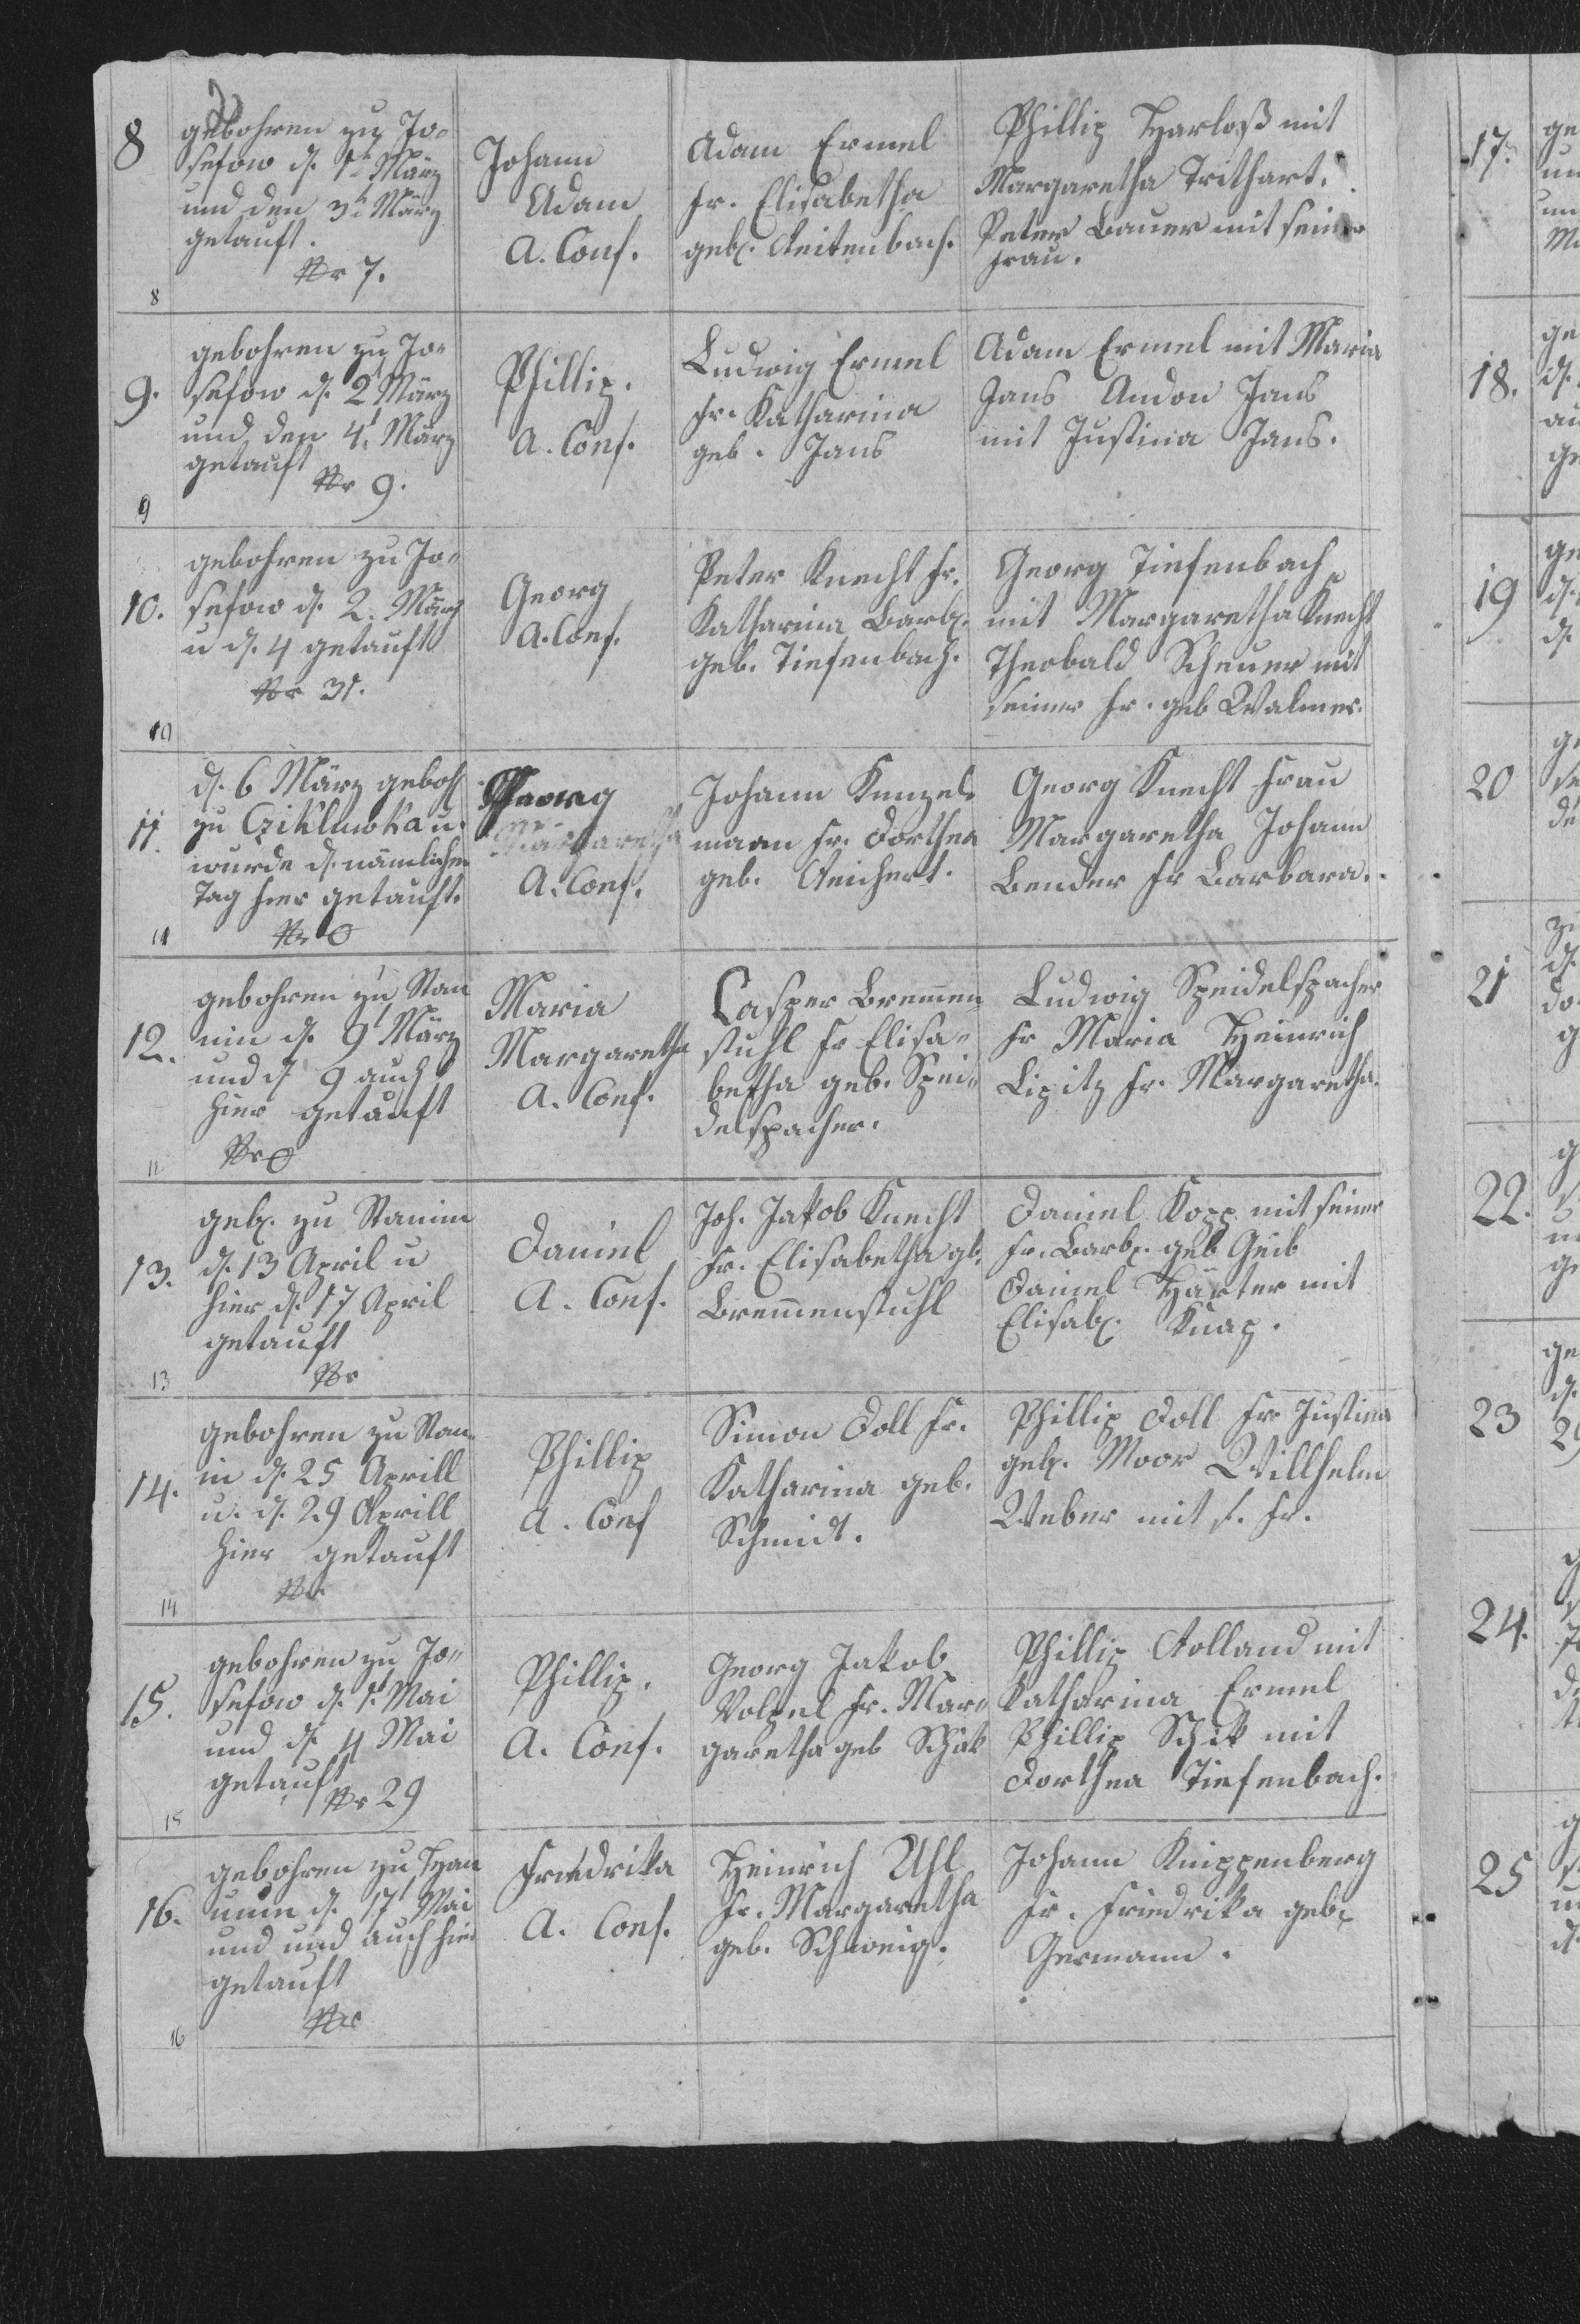 8
gebohren zu Jo-
sefow d. 1t März
und den 3t März
getauft.
Nr 7.
8
Johann
Adam
A. Conf.
Adam Ermel
Fr. Elisabetha
geb. Reitenbach.
Phillip Harloß mit
Margaretha Trithart.
Peter Bauer mit seiner
Frau.
9.
gebohren zu Jo-
sefow d. 2t März
und den 4t März
getauft
Nr 9.
9
Phillip.
A. Conf.
Ludwig Ermel
Fr. Katharina
geb. Jans
Adam Ermel mit Maria
Jans Andon Jans
mit Justina Jans.
10.
gebohren zu Jo-
sefow d. 2. März
u d. 4 getauft
Nr 31.
10
Georg
A. Conf.
Peter Knecht Fr.
Katharina Barb.
geb. Tiefenbach.
Georg Tiefenbach
mit Margaretha Knecht
Theobald Scheuer mit
seiner Fr. geb Walmer.
11.
d. 6 März geboh
zu Czikluwka u.
wurde d. nämlichen
Tag hier getauft.
Nr 0
11
Georg
Margaretha
A. Conf.
Johann Kunzel-
mann Fr. Dorthea
geb. Reichert.
Georg Knecht Frau
Margaretha Johann
Bender Fr Barbara.
12.
gebohren zu Stan
nin d. 9t März
und d 9 auch
hier getauft
Nr 0
12
Maria
Margaretha
A. Conf.
Casper Bremen-
stuhl Fr Elisa-
betha geb. Spei-
delspacher.
Ludwig Speidelspacher
Fr Maria Heinrich
Lipitz Fr. Margaretha.
13.
geb. zu Stanin
d. 13 April u
hier d. 17 April
getauft
Nr
13
Daniel
A. Conf.
Joh. Jakob Knecht
Fr. Elisabetha gb.
Bremenstuhl
Daniel Kopp mit seiner
Fr. Barb. geb Geib
Daniel Härter mit
Elisab. Knap.
14.
gebohren zu Stan-
in d. 25 Aprill
u. d. 29 Aprill
hier getauft
Nr
14
Phillip
A. Conf
Simon Doll Fr.
Katharina geb.
Schmidt.
Phillip Doll Fr Justina
geb. Moor Willhelm
Weber mit s. Fr.
15.
gebohren zu Jo-
sefow d. 1t Mai
und d. 4 Mai
getauft
Nr 29
15
Phillip.
A. Conf.
Georg Jakob
Volpel Fr. Mar-
garetha geb Schik
Phillip Rolland mit
Katharina Ermel
Phillip Schik mit
Dorthea Tiefenbach.
16.
gebohren zu Han
unin d. 17t Mai
und und auch hier
getauft
Nr
16
Friedrika
A. Conf.
Heinrich Uhl
Fr. Margaretha
geb. Schweig.
Johann Knippenberg
Fr. Friedrika geb.
Germann.
17.
18.
19
20
21
22.
23
24.
25